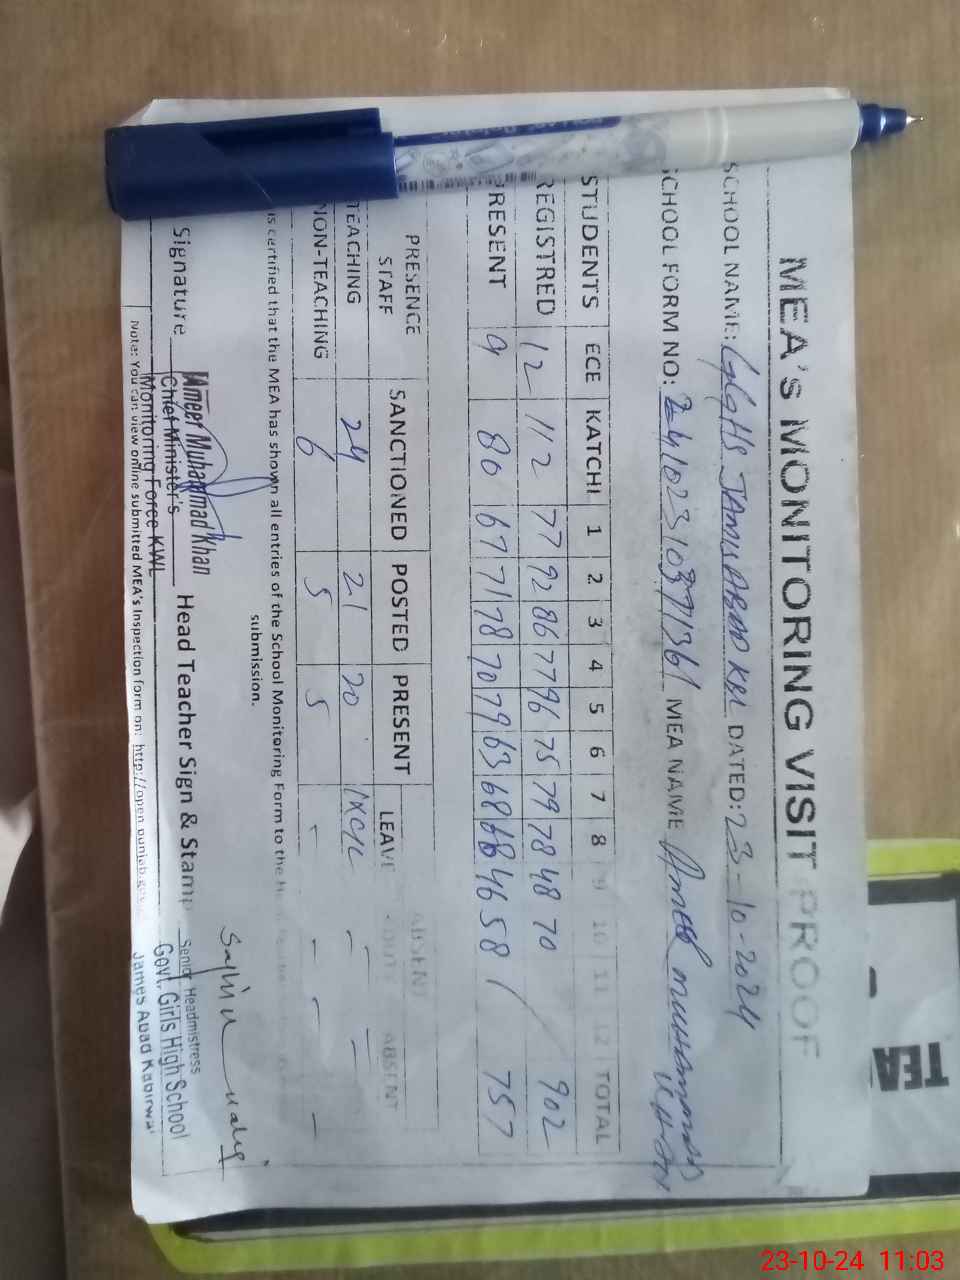 MEA's MONITORING VISIT PROOF
SCHOOL NAME: GGHS JAMISABAD KBL DATED: 23-10-2024
SCHOOL FORM NO: MEA NAME Ameer muhammad Khan
STUDENTS ECE KATCHI 1 2 3 4 5 6 7 8 9 10 11 12 TOTAL
REGISTRED 12 112 77 92 86 77 96 75 79 78 48 70 902
PRESENT 9 80 67 71 78 70 79 63 68 68 46 58 / 757
PRESENCE STAFF SANCTIONED POSTED PRESENT LEAVE ABSENT ABSENT
TEACHING 24 21 20 - -
NON-TEACHING 6 5 5 - - - -
is certified that the MEA has shown all entries of the School Monitoring Form to the
submission.
Signature Ameer Muhammad Khan Head Teacher Sign & Stamp
Chief Minister's Senior Headmistress
Monitoring Force KWL Govt. Girls High School
Note: You can view online submitted MEA's Inspection form on: http://open.punjab.gov. James Abad Kabirwal
TEA
23-10-24 11:03